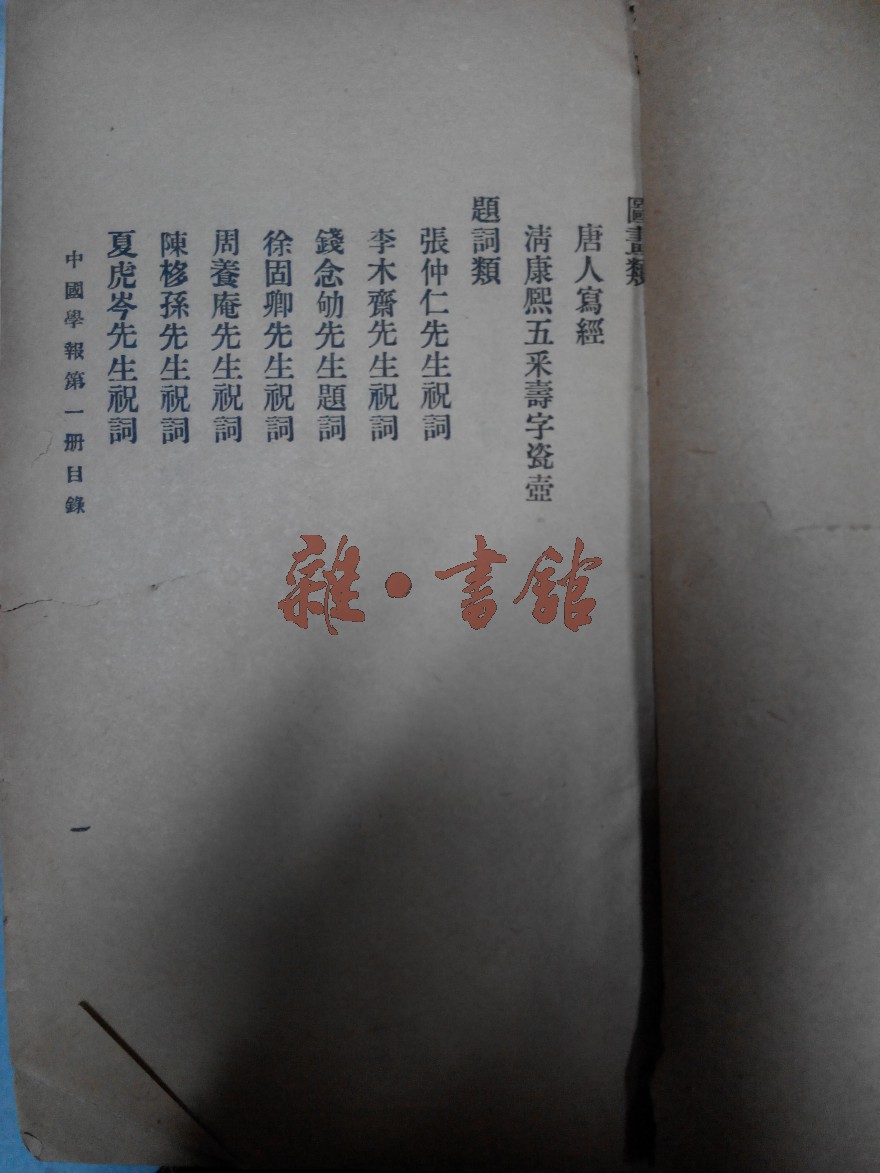 圖畫類
唐人寫經
淸康熙五釆壽字瓷壺
題詞類
張仲仁先生祝詞
李木齋先生祝詞
錢念劬先生題詞
徐固卿先生祝詞
周養庵先生祝詞
陳栘孫先生祝詞
夏虎岑先生祝詞
中國學報第一册目錄
一
雜·書館